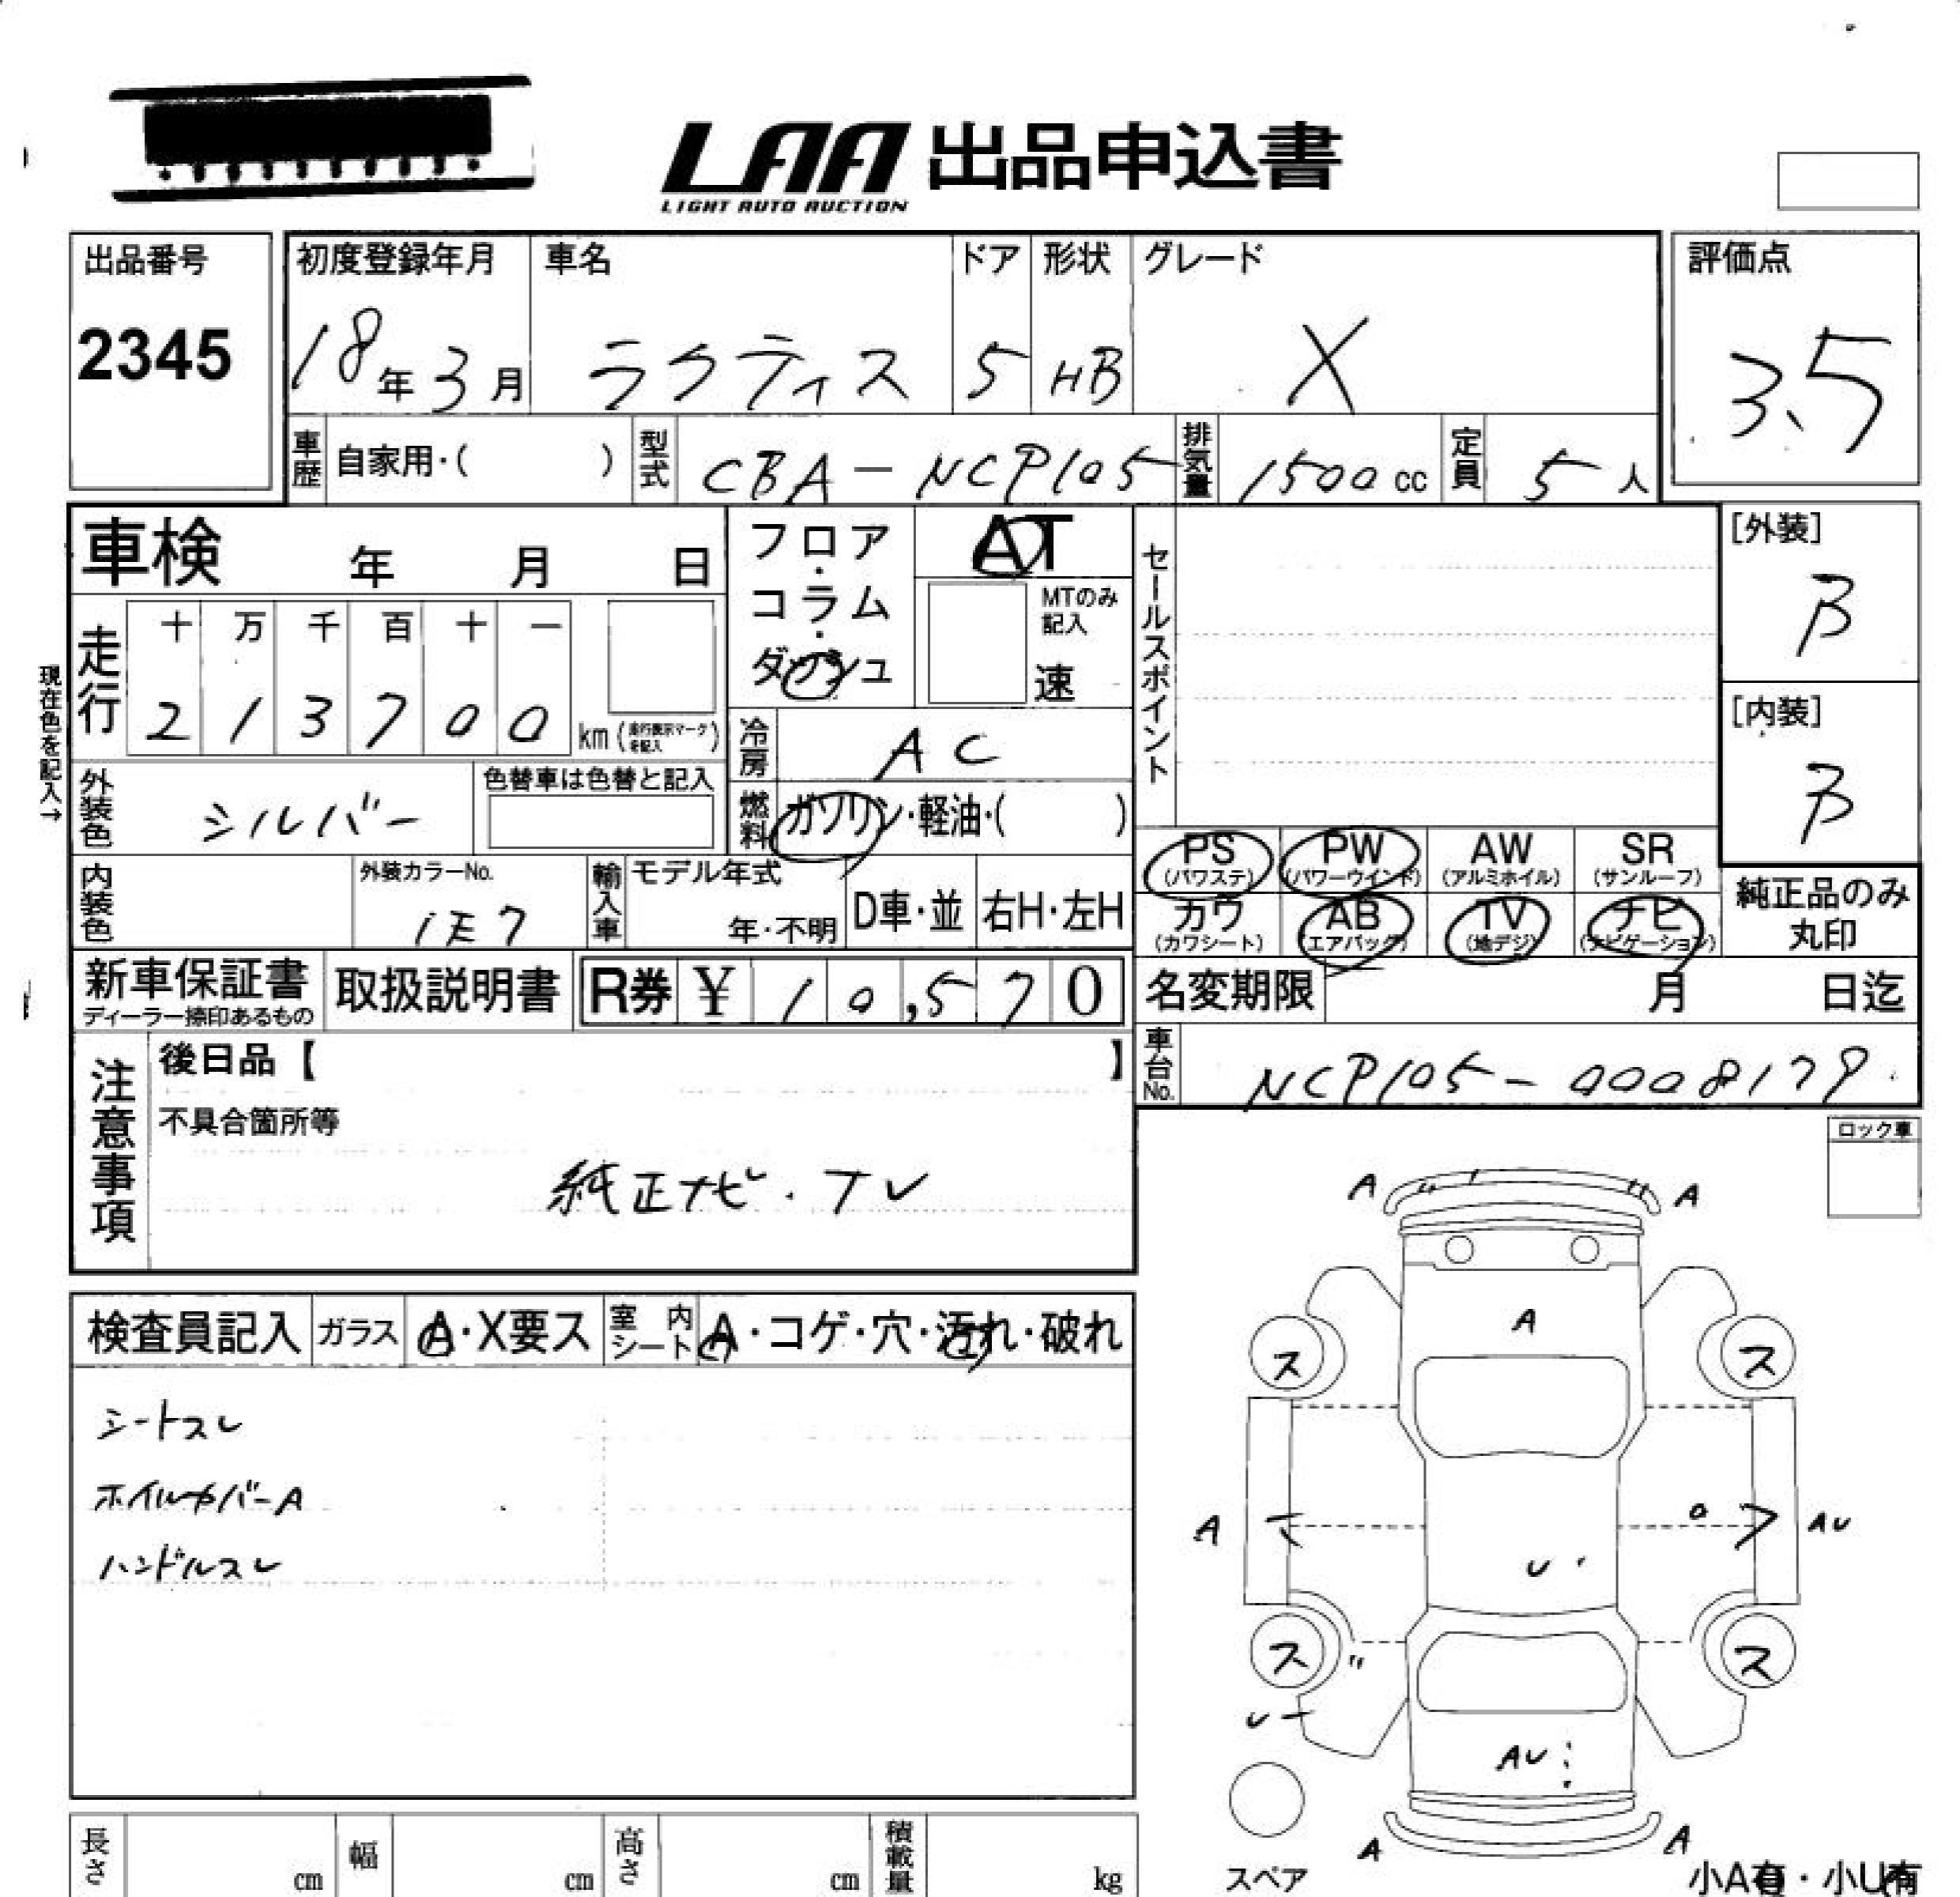 LAA 出品申込書
LIGHT AUTO AUCTION
出品番号
2345
初度登録年月
18年3月
車名
ラクティス
ドア
5
形状
HB
グレード
X
評価点
3.5
車歴
自家用・( )
型式
CBA-NCP105
排気量
1500cc
定員
5人
車検 年 月 日
フロア・コラム・ダッシュ
AT
MTのみ記入
速
セールスポイント
[外装]
B
[内装]
B
現在色を記入→
走行
十 万 千 百 十 一
2 1 3 7 0 0 km(走行表示マークを記入)
冷房
AC
外装色
シルバー
色替車は色替と記入
燃料
ガソリン・軽油・( )
内装色
外装カラーNo.
1E7
輸入車
モデル年式
年・不明
D車・並
右H・左H
PS (パワステ)
PW (パワーウインド)
AW (アルミホイル)
SR (サンルーフ)
カワ (カワシート)
AB (エアバッグ)
TV (地デジ)
ナビ (ナビゲーション)
純正品のみ丸印
新車保証書
ディーラー捺印あるもの
取扱説明書
R券 ¥ 10,570
名変期限 月 日迄
車台No.
NCP105-0008179
注意事項
後日品【 】
不具合箇所等
純正ナビ・TV
ロック車
検査員記入
ガラス
A・X要ス
室内シート
A・コゲ・穴・汚れ・破れ
シートスレ
ホイルカバーA
ハンドルスレ
A A
A
ス ス
A AU
U
ス ス
U
AU
A A
スペア
小A有・小U有
長さ cm
幅 cm
高さ cm
積載量 kg